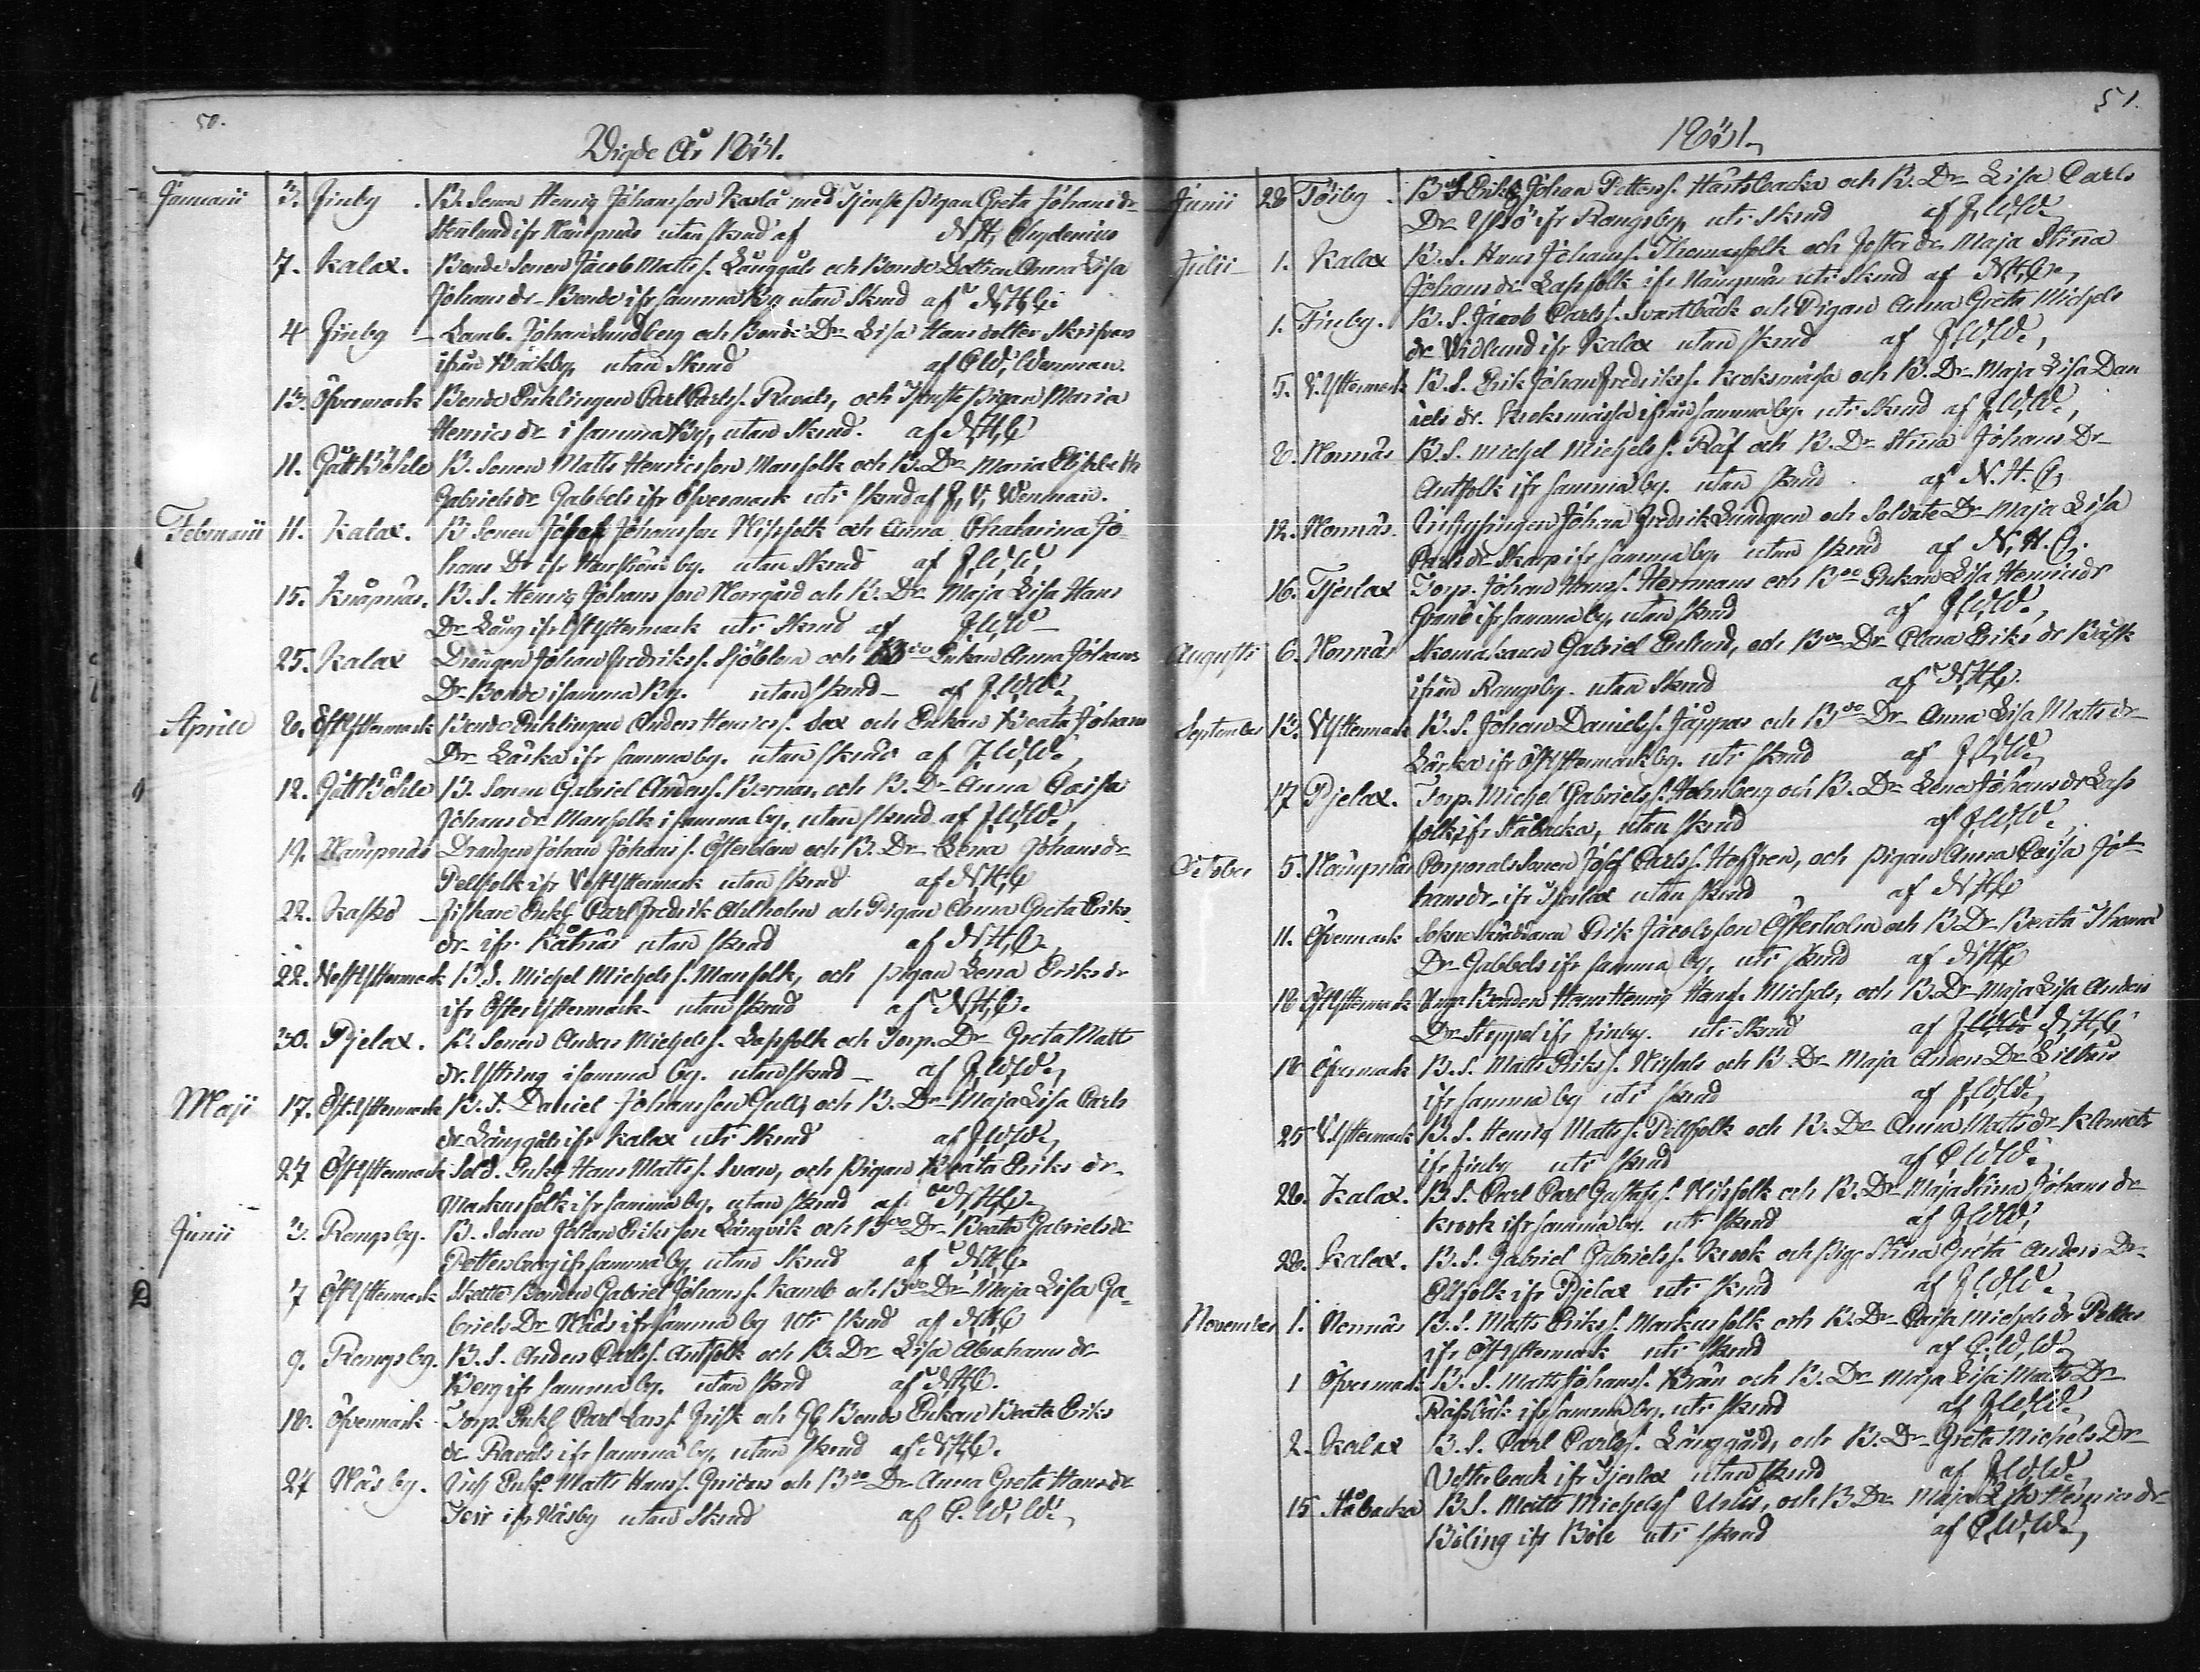 50.
Vigde År 1831.
Januarii 3. Finby B. Sonen Henrig Johansson Kaslå med Tjenste pigan Greta Johansdr
Stenlund ifr Nämpnäs utan skrud af N.H. Chydenius
7. Kalax. Bonde Sonen Jacob Matts s. Långgåls och Bonde Dottren Anna Lisa
Johans dr Bonde ifr samma By utan Skrud af N.H.C.
4 Finby Lamb. Johan Sundberg och Bonde Dr Lisa Hans dotter Skrifvars
ifrån Bäckby, utan Skrud af C.W. Wenman.
13. Öfvermark Bonde Enklingen Carl Carls s. Ravals, och Tjenste pigan Maria
Henrics dr i samma By, utan Skrud. af N.H.C
11. Gåttböhle B. Sonen Matts Henricsson Mansfolk och B. Dr Maria Elisabeth
Gabrielsdr Gabbels ifr Öfvermark uti skrud af J.V. Wenman.
Februarii 11. Kalax. B Sonen Josef Johansson Nissfolk och Anna Chatarina Jo-
hans Dr ifr by. utan Skrud af J.W.W.
15. Knåpnäs. B. S. Henrig Johansson Norrgård och B. Dr Maja Lisa Hans
Dr Lång ifr Öst Yttermark uti Skrud af J.W.W
25. Kalax Drängen Johan Fredriks s. Sjöblom och B:de Enkan Anna Johans
Dr Bonde i samma By. utan skrud af J.W.W.
Aprill 6. Öst Yttermark Bonde Enklingen Anders Henrics s. Sax och Enkan Beata Johans
Dr Lärka ifr samma by. utan skrud af J.W.W.
12. Gåttböhle B. Sonen Gabriel Anders s. Berna, och B. Dr Anna Caisa
Johans dr Mansfolk i samma by, utan skrud af J.W.W.
19. Nämpnäs Drängen Johan Johans s. Österblom och B. Dr Lena Johansdr
Pellfolk ifr Vest Yttermark utan skrud af N.H.C
22. Kaskö Fiskare Enkl Carl Fredrik Ahlholm och Pigan Anna Greta Eriks
dr ifr Kåtnäs utan skrud af N.H.C.
22. Vest Yttermark B.S. Michel Michels s. Mansfolk, och pigan Lena Eriksdr
ifr Öster Yttermark utan skrud af N.H.C.
30. Pjelax. B. Sonen Anders Michels s. Lassfolk och Torp. Dr Greta Matts
dr Ystring i samma by. utan skrud af J.W.W.
Maji 17. Öst. Yttermark B. S. Daniel Johansson Gulls och B. Dr Maja Lisa Carls
dr Långgåls ifr Kalax uti Skrud af J.W.W.
27 Öst Yttermark Sold. Enkl Hans Matts s. Svan, och Pigan Beata Eriks dr
Markusfolk ifr samma by, utan skrud af N.H.C.
Junii 3. Rangsby. B. Sonen Johan Eriksson Långvik och B:de Dr Beata Gabrielsdr
Pettersberg ifr samma by utan skrud af N.H.C.
7 Öst Yttermark Skatte Bonden Gabriel Johans s. Kamb och B:de Dr Maja Lisa Ga-
briels Dr Näds ifr samma by uti skrud af N.H.C
9. Rangsby. B. S. Anders Carls s. Antfolk och B. Dr Lisa Abrahams dr
Berg ifr samma by. utan skrud af N.H.C.
18. Öfvermark Torp. Enkl Carl Lars s. Frisk och Bonde Enkan Beata Eriks
dr Ravals ifr samma by, utan skrud af N.H.C.
27 Näsby. Enkl. Matts Hans s. och B:de Dr Anna Greta Hansdr
Teir ifr Näsby utan Skrud af C.W.W.
51.
1831.
Junii 28 Töiby B S Erik Johan Petters s. Härtsbacka och B. Dr Lisa Carls
Dr Ifsö ifr Rangsby, uti skrud af J.W.W.
Julii 1. Kalax B. S. Hans Johans s. Thomasfolk och dr Maja Stina
Johans dr Lassfolk ifr Nämpnäs uti Skrud af N.H.C.
1. Finby. B. S. Jacob Carls s. Svartbäck och Pigan Anna Greta Michels
dr Vidlund ifr Kalax utan skrud af J.W.W.
5. V. Yttermark B. S. Erik Johan Fredriks s. Kroksmässa och B. Dr Maja Lisa Dan
iels dr. Kroksmässa ifrån samma by. uti Skrud af J.W.W.
8. Nornäs B. S. Michel Michels s. Räf och B. Dr Stina Johans Dr
Antfolk ifr samma by. utan skrud af N.H.C.
12. Nornäs. Johan Fredrik Lundgren och Soldate Dr Maja Lisa
Carls dr Skarp ifr samma by. utan skrud af N.H.C.
16. Tjerlax Torp. Johan Hans s. Hermans och B:de Enkan Lisa Henricsdr
Granö ifr samma by, utan skrud af J.W.W.
Augusti 6. Nornäs Skomakaren Gabriel Enlund, och B:de Dr Clara Eriks dr Bäck
ifrån Rangsby. utan Skrud af N.H.C.
September 13. V Yttermark B. S. Johan Daniels s. Jåppas och B:de Dr Anna Lisa Matts dr
Lärka ifr Öst Yttermark by. uti skrud af J.W.W.
17 Pjelax. Torp. Michel Gabriels s. Holmberg och B. Dr Lena Johans dr Lass
folk ifr Ståbacka, utan skrud af J.W.W.
October 5. Nämpnäs Corporals Sonen Josef Carls s. Hoffren, och pigan Anna Caisa Jo-
hans dr ifr Tjerlax utan skrud af N.H.C
11. Öfvermark Sockne Skräddaren Erik Jacobsson Österholm och B Dr Beata Thoms
Dr Gabbels ifr samma by, uti Skrud af N.H.C
18 Öst Yttermark Unga Bonden Hans Henrig Hans s. Michels, och B. Dr Maja Lisa Anders
Dr Heppel ifr Finby. uti Skrud af N.H.C
18 Öfvermark B. S. Matts Eriks s. Nissals och B. Dr Maja Anders Dr Lillhus
ifr samma by uti skrud af J.W.W.
25 V. Yttermark B. S. Henrig Matts s. Pellfolk och B. Dr Anna Matts dr Klemets
ifr Finby uti skrud af C.W.W.
28. Kalax. B. S. Carl Carl Gustafs s. Nissfolk och B. Dr Maja Stina Johans dr
Krook ifr samma by. uti skrud af J.W.W.
28. Kalax. B. S. Gabriel Gabriels s. Krook och Pig. Stina Greta Anders Dr
Ellfolk ifr Pjelax uti skrud af J.W.W.
November 1. Nornäs B. S. Matts Eriks s. Markusfolk och B. Dr Caisa Michels dr Pettas
ifr Öst Yttermark uti skrud af C.W.W.
1 Öfvermark B. S. Matts Johans s. Brän och B. Dr Maja Lisa Matts Dr
Råssbäk ifr samma by. uti skrud af J.W.W.
2. Kalax B. S. Carl Carls s. Långgård, och B. Dr Greta Michels Dr
Vesterback ifr Tjerlax utan skrud af J.W.W.
15 Ståbacka B S. Matts Michels s Uulis, och B Dr Maja Lisa Henricsdr
Böling ifr Böle uti skrud af C.W.W.